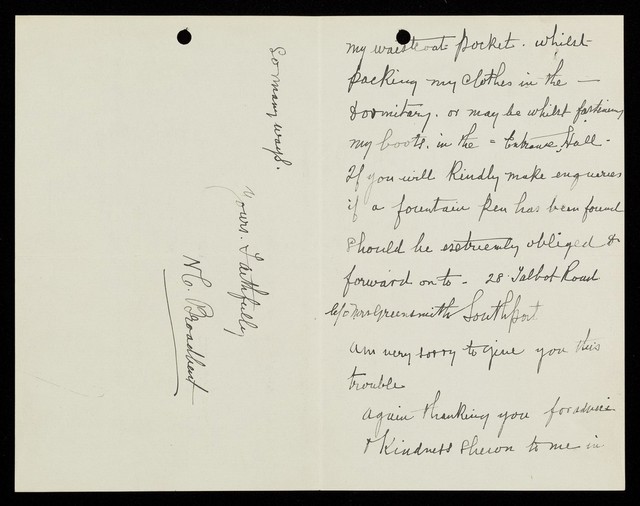 my waistcoat pocket. whilst
packing my clothes in the —
dormitary. or may be whilst fastining
my boots. in the = Entrance Hall -
If you will kindly make enqueries
if a fountain pen has been found
should be extreemly obliged to
forward on to - 28 Talbot Road
c/o Mrs Greensmith Southport
am very sorry to give you this
trouble
again thanking you for advice
& kindness shewn to me in
so many ways.
Yours. Faithfully
H C. Broadbent